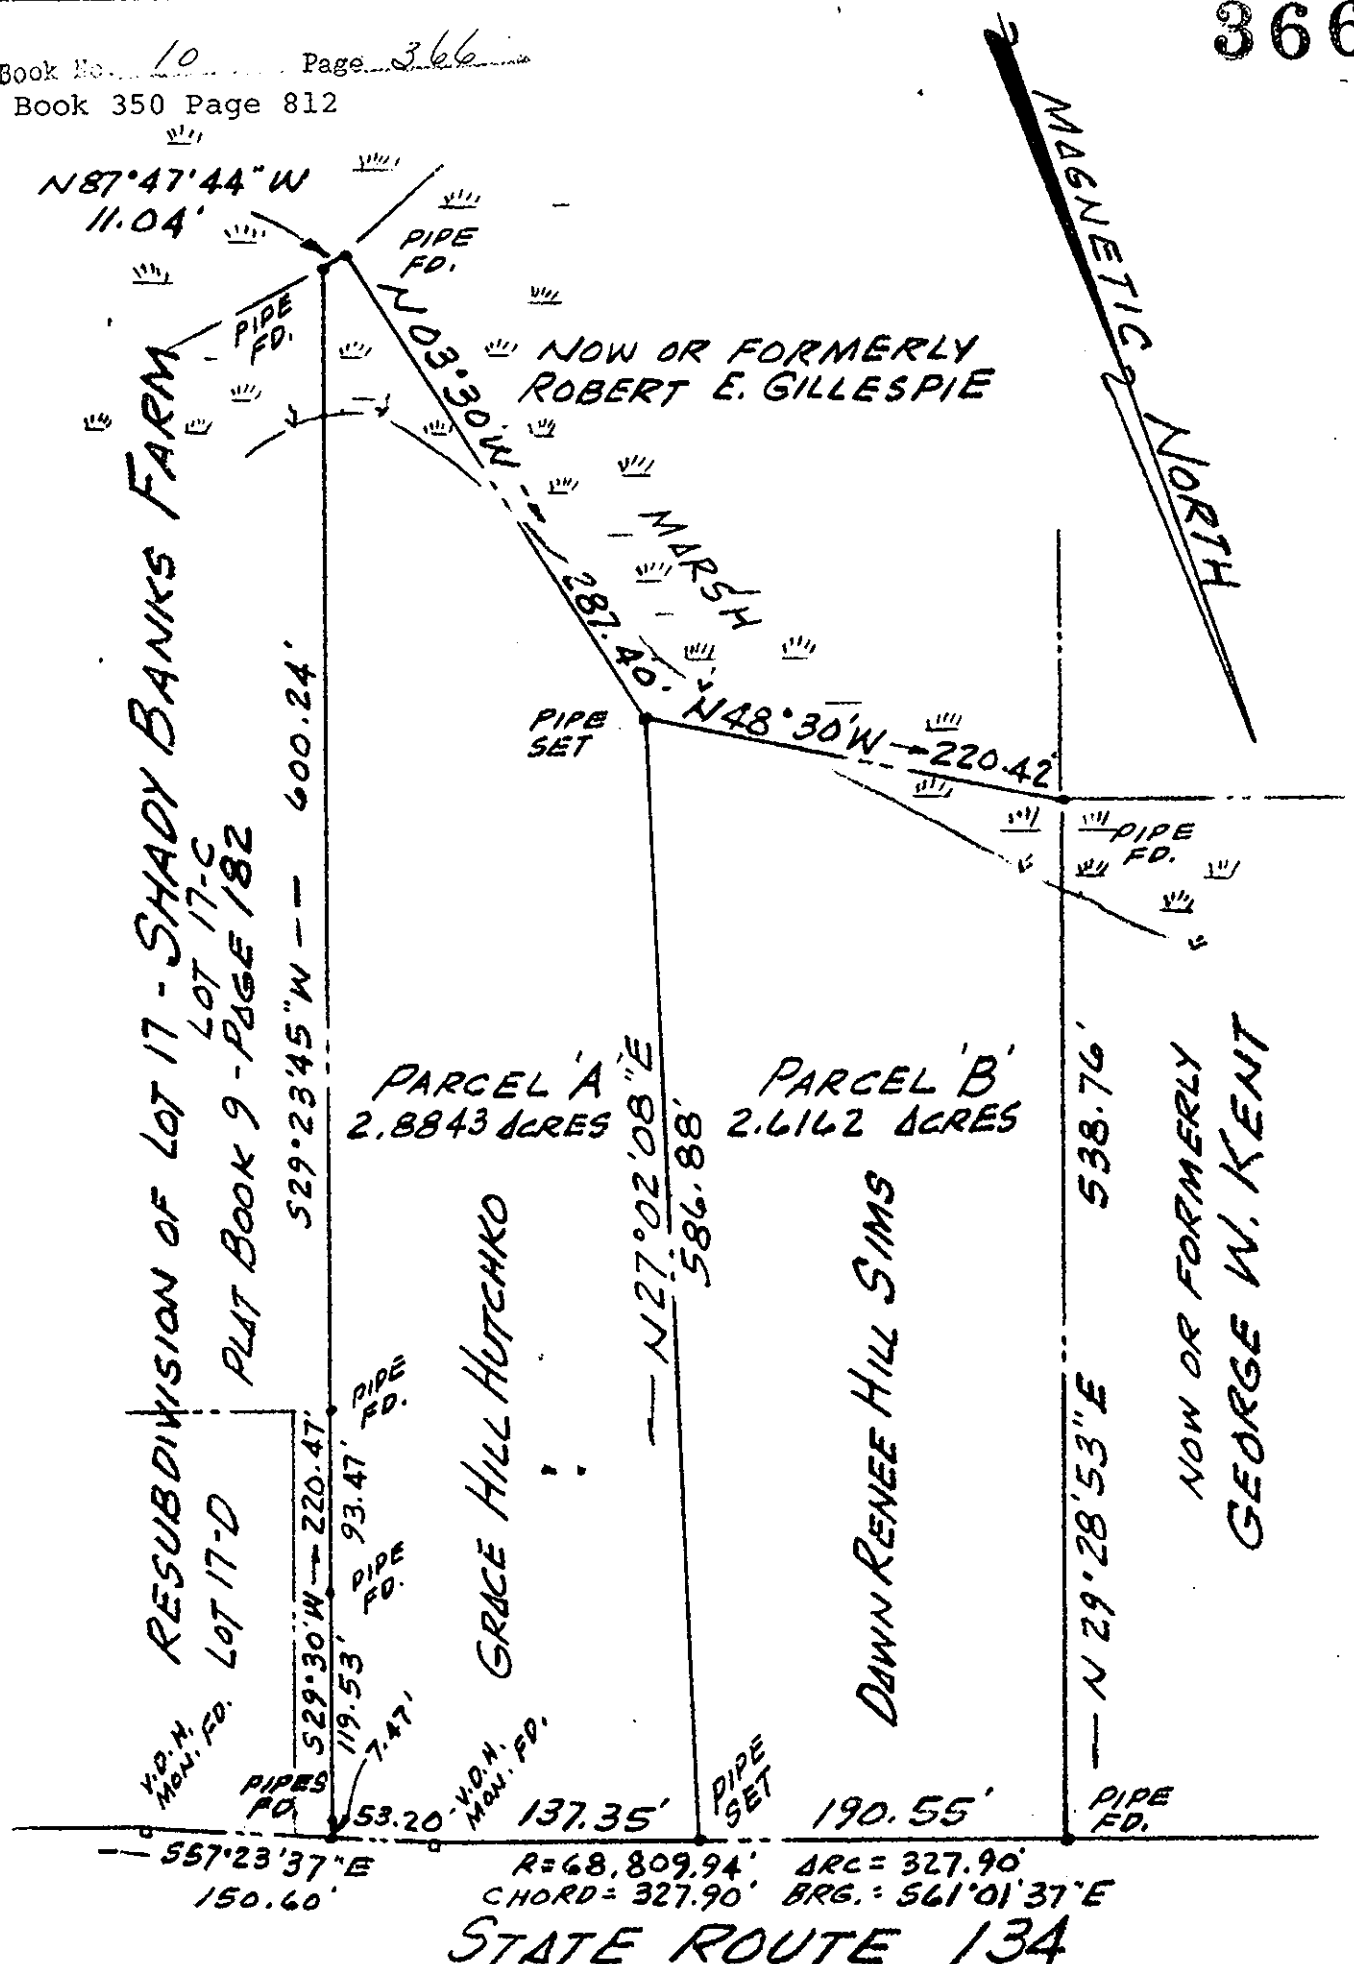 366
Book No. 10 Page 366
Book 350 Page 812
N87°47'44"W
11.04'
PIPE
FD.
PIPE
FD.
MAGNETIC NORTH
N03°30'W
287.40'
NOW OR FORMERLY
ROBERT E. GILLESPIE
MARSH
PIPE
SET
N48°30'W
220.42'
PIPE
FD.
RESUBDIVISION OF LOT 17 - SHADY BANKS FARM
LOT 17-C
PLAT BOOK 9 - PAGE 182
S29°23'45"W — 600.24'
PARCEL 'A'
2.8843 ACRES
GRACE HILL HUTCHKO
N27°02'08"E
586.88'
PARCEL 'B'
2.6162 ACRES
DAWN RENEE HILL SIMS
538.76'
N 29°28'53"E
NOW OR FORMERLY
GEORGE W. KENT
LOT 17-D
S29°30'W — 220.47'
PIPE
FD.
93.47'
PIPE
FD.
119.53'
7.47'
V.D.H.
MON. FD.
PIPES
FD.
53.20
V.D.H.
MON. FD.
137.35'
PIPE
SET
190.55'
PIPE
FD.
S57°23'37"E
150.60'
R=68,809.94' ARC=327.90'
CHORD=327.90' BRG.: S61°01'37"E
STATE ROUTE 134